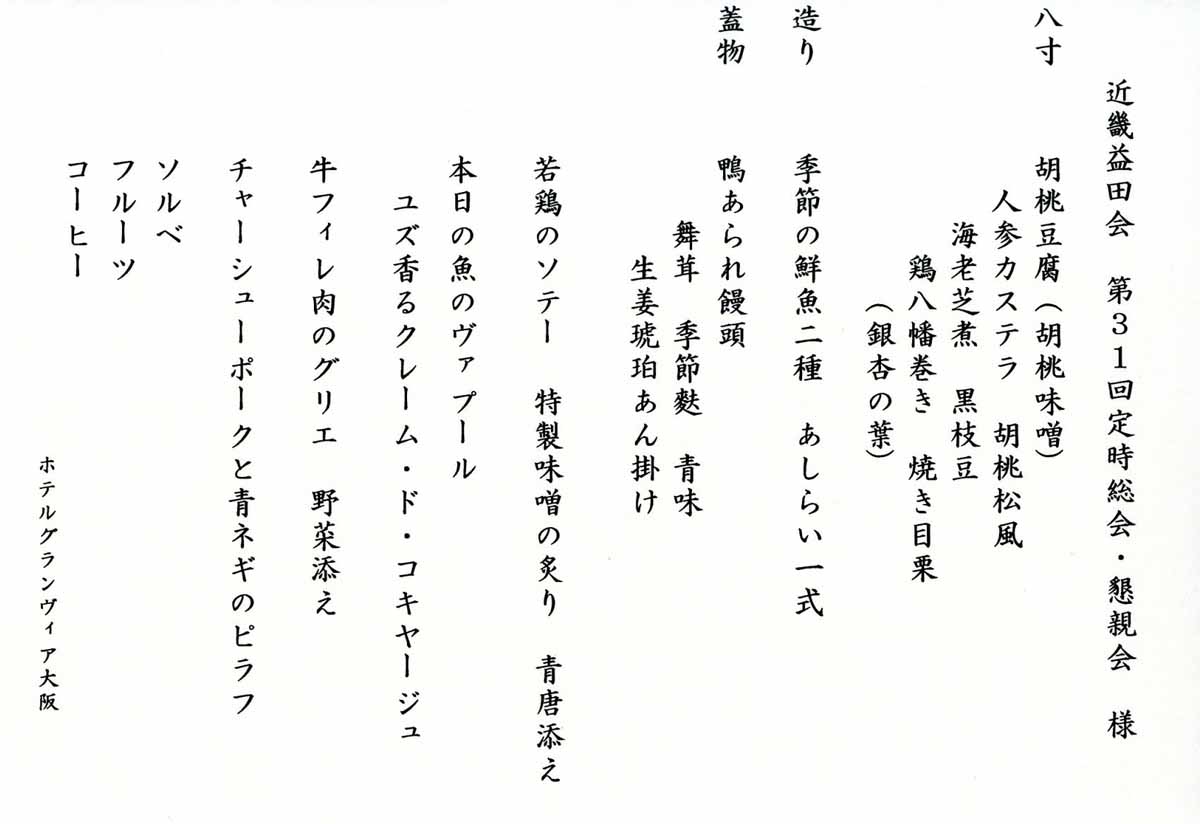 近畿益田会　第３１回定時総会・懇親会　様
八寸　胡桃豆腐（胡桃味噌）
人参カステラ　胡桃松風
海老芝煮　黒枝豆
鶏八幡巻き　焼き目栗
（銀杏の葉）
造り　季節の鮮魚二種　あしらい一式
蓋物　鴨あられ饅頭
舞茸　季節麩　青味
生姜琥珀あん掛け
若鶏のソテー　特製味噌の炙り　青唐添え
本日の魚のヴァプール
ユズ香るクレーム・ド・コキヤージュ
牛フィレ肉のグリエ　野菜添え
チャーシューポークと青ネギのピラフ
ソルベ
フルーツ
コーヒー
ホテルグランヴィア大阪